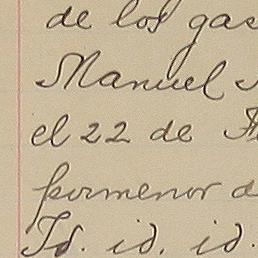 de los gas
Manuel
el 22 de
pormenor d
Id. id. id.